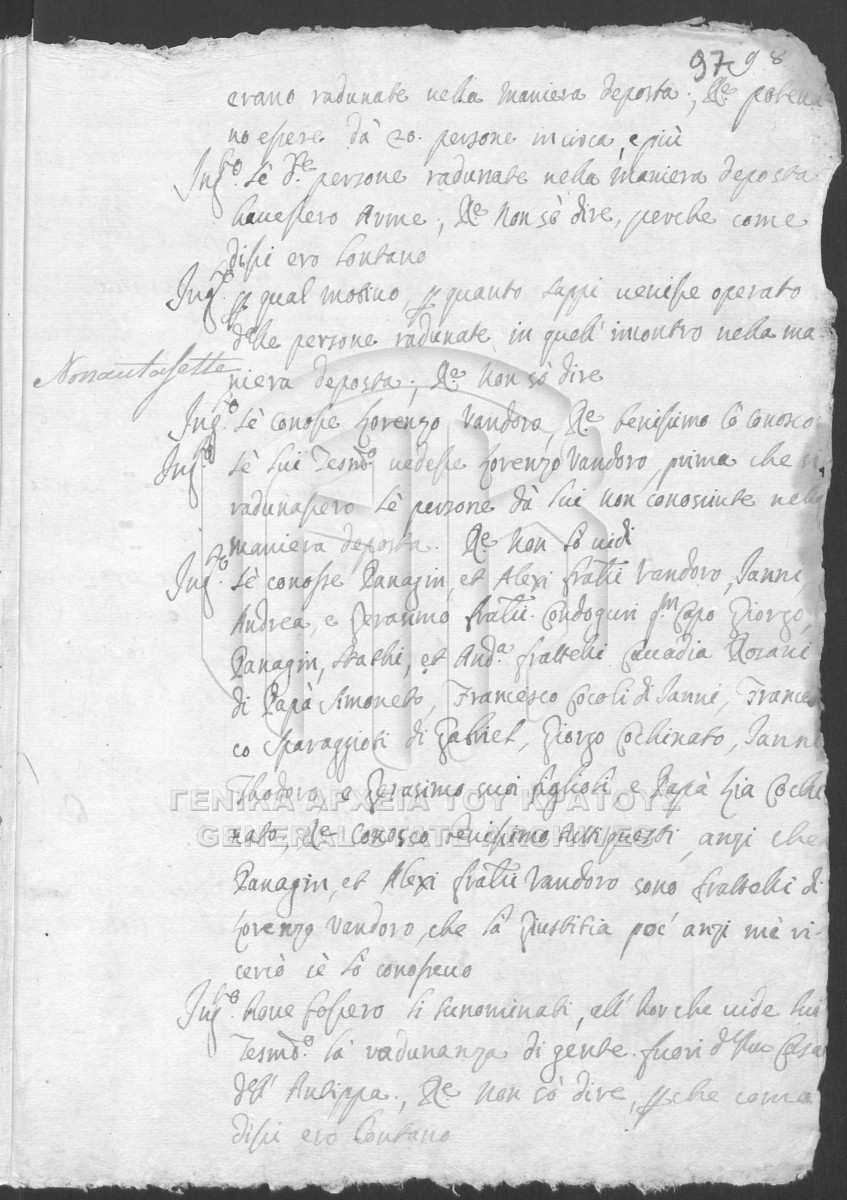 97 98
erano radunate nella maniera deposta; Re. poteua-
no essere dà 20. persone in circa, e più
Intto. Sè de. persone radunate nella maniera deposta
hauessero Arme; Re. Non sò dire, perche come
dissi ero lontano
Intto. per qual motiuo, per quanto sappi uenisse operato
delle persone radunate in quell' incontro nella ma-
Nonantasette
niera deposta; Re. Non sò dire
Intto. Sè conosce Lorenzo Vandoro, Re. benissimo lò conosco
Intto. Sè lui Tesmo. uedesse Lorenzo Vandoro, prima che si
radunassero lè persone dà lui non conosciute nella
maniera deposta. Re. Non lò uidi
Intto. Sè conosce Panagin, et Alexi fratli Vandoro, Janni,
Andrea, e Gerasimo fratli. Condoguri qm. Capo Giorgo,
Panagin, Stathi, et Anda. frattelli Rosani
di Papà Simoneto, Francesco Cocoli di Janni, Frances-
co Sparaggioti di Gabriel, Giorgo Cochinato, Janni
Thodoro, e Gerasimo suoi figlioli e Papà Lia Cochi-
nato, Re. Conosco benissimo tutti questi, anzi che
Panagin, et Alexi fratli Vandoro sono frattelli di
Lorenzo Vandoro, che la Giustitia poc' anzi mè ri-
cercò sè lò conosceuo
Intto. Doue fossero li sunominati, all' hor che uide lui
Tesmo. la radunanza di gente fuori della Casa
dell' Antippa, Re. Non sò dire, perche come
dissi ero lontano
ΓΕΝΙΚΑ ΑΡΧΕΙΑ ΤΟΥ ΚΡΑΤΟΥΣ
GENERAL STATE ARCHIVES